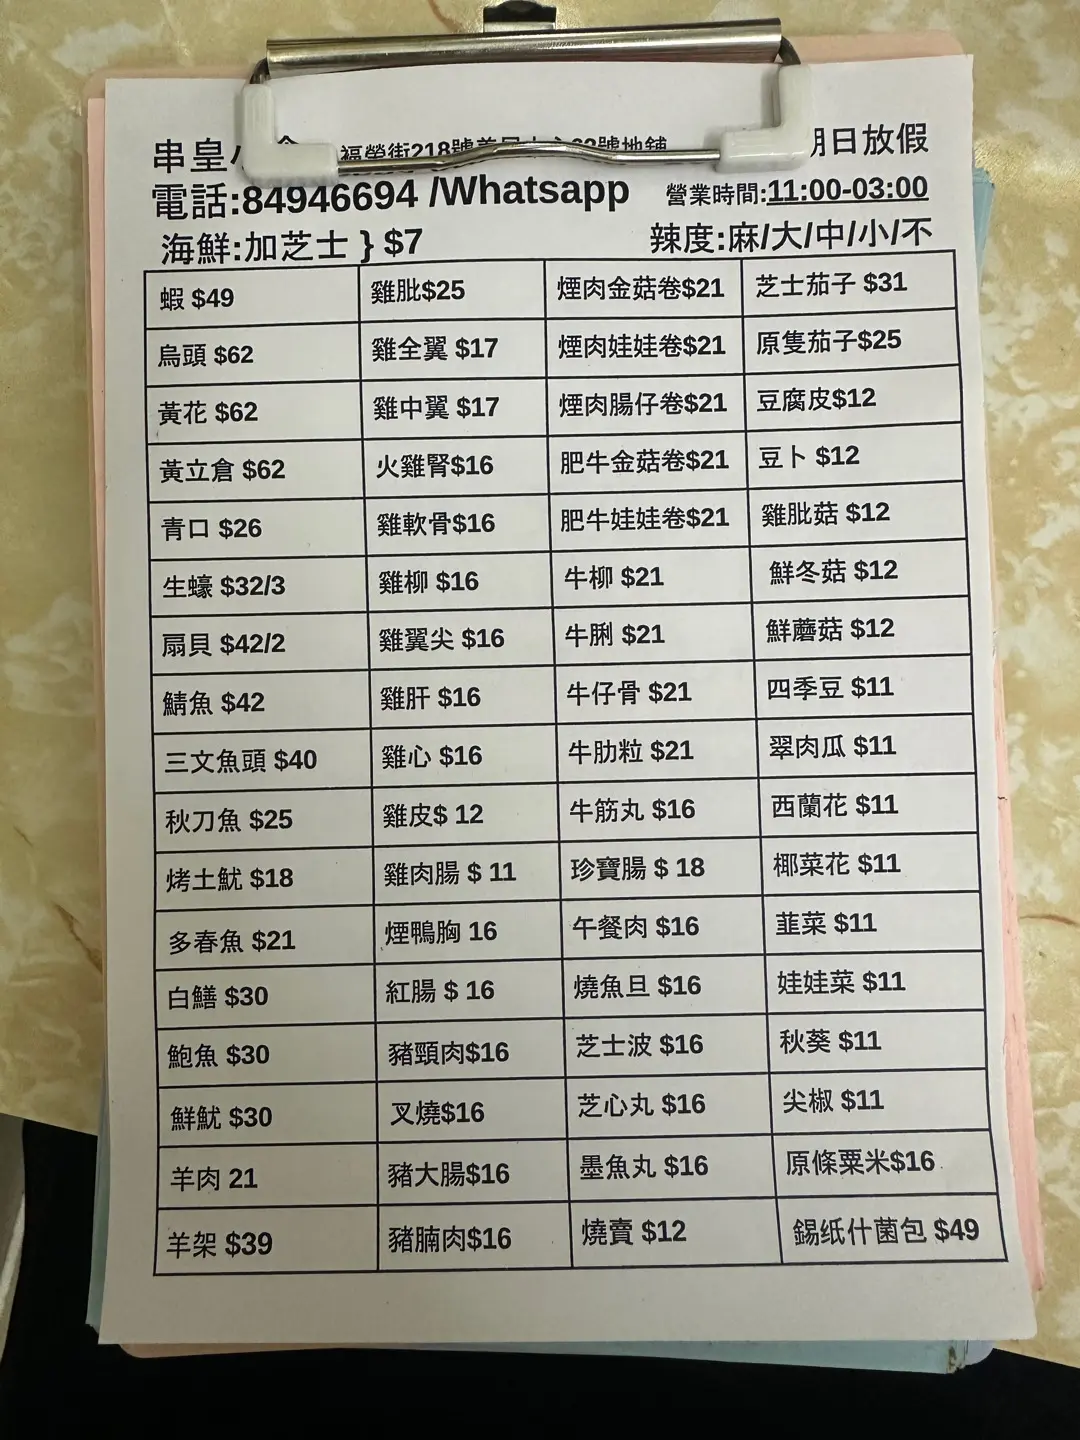 串皇小食 福榮街218號 號地鋪 期日放假
電話:84946694 /Whatsapp 營業時間:11:00-03:00
海鮮:加芝士 } $7 辣度:麻/大/中/小/不
蝦 $49 雞肶$25 煙肉金菇卷$21 芝士茄子 $31
烏頭 $62 雞全翼 $17 煙肉娃娃卷$21 原隻茄子$25
黃花 $62 雞中翼 $17 煙肉腸仔卷$21 豆腐皮$12
黃立倉 $62 火雞腎$16 肥牛金菇卷$21 豆卜 $12
青口 $26 雞軟骨$16 肥牛娃娃卷$21 雞肶菇 $12
生蠔 $32/3 雞柳 $16 牛柳 $21 鮮冬菇 $12
扇貝 $42/2 雞翼尖 $16 牛脷 $21 鮮蘑菇 $12
鯖魚 $42 雞肝 $16 牛仔骨 $21 四季豆 $11
三文魚頭 $40 雞心 $16 牛肋粒 $21 翠肉瓜 $11
秋刀魚 $25 雞皮$ 12 牛筋丸 $16 西蘭花 $11
烤土魷 $18 雞肉腸 $ 11 珍寶腸 $ 18 椰菜花 $11
多春魚 $21 煙鴨胸 16 午餐肉 $16 韮菜 $11
白鱔 $30 紅腸 $ 16 燒魚旦 $16 娃娃菜 $11
鮑魚 $30 豬頸肉$16 芝士波 $16 秋葵 $11
鮮魷 $30 叉燒$16 芝心丸 $16 尖椒 $11
羊肉 21 豬大腸$16 墨魚丸 $16 原條粟米$16
羊架 $39 豬腩肉$16 燒賣 $12 錫纸什菌包 $49